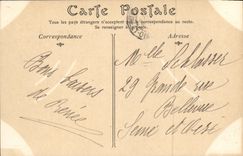 Carte Postale
Tous les pays étrangers n'acceptent pas la correspondance au recto.
Se renseigner à la Poste.
Correspondance
Adresse
Bons baisers
de
Mlle Schlosser
29 Grande rue
Bellevue
Seine et Oise